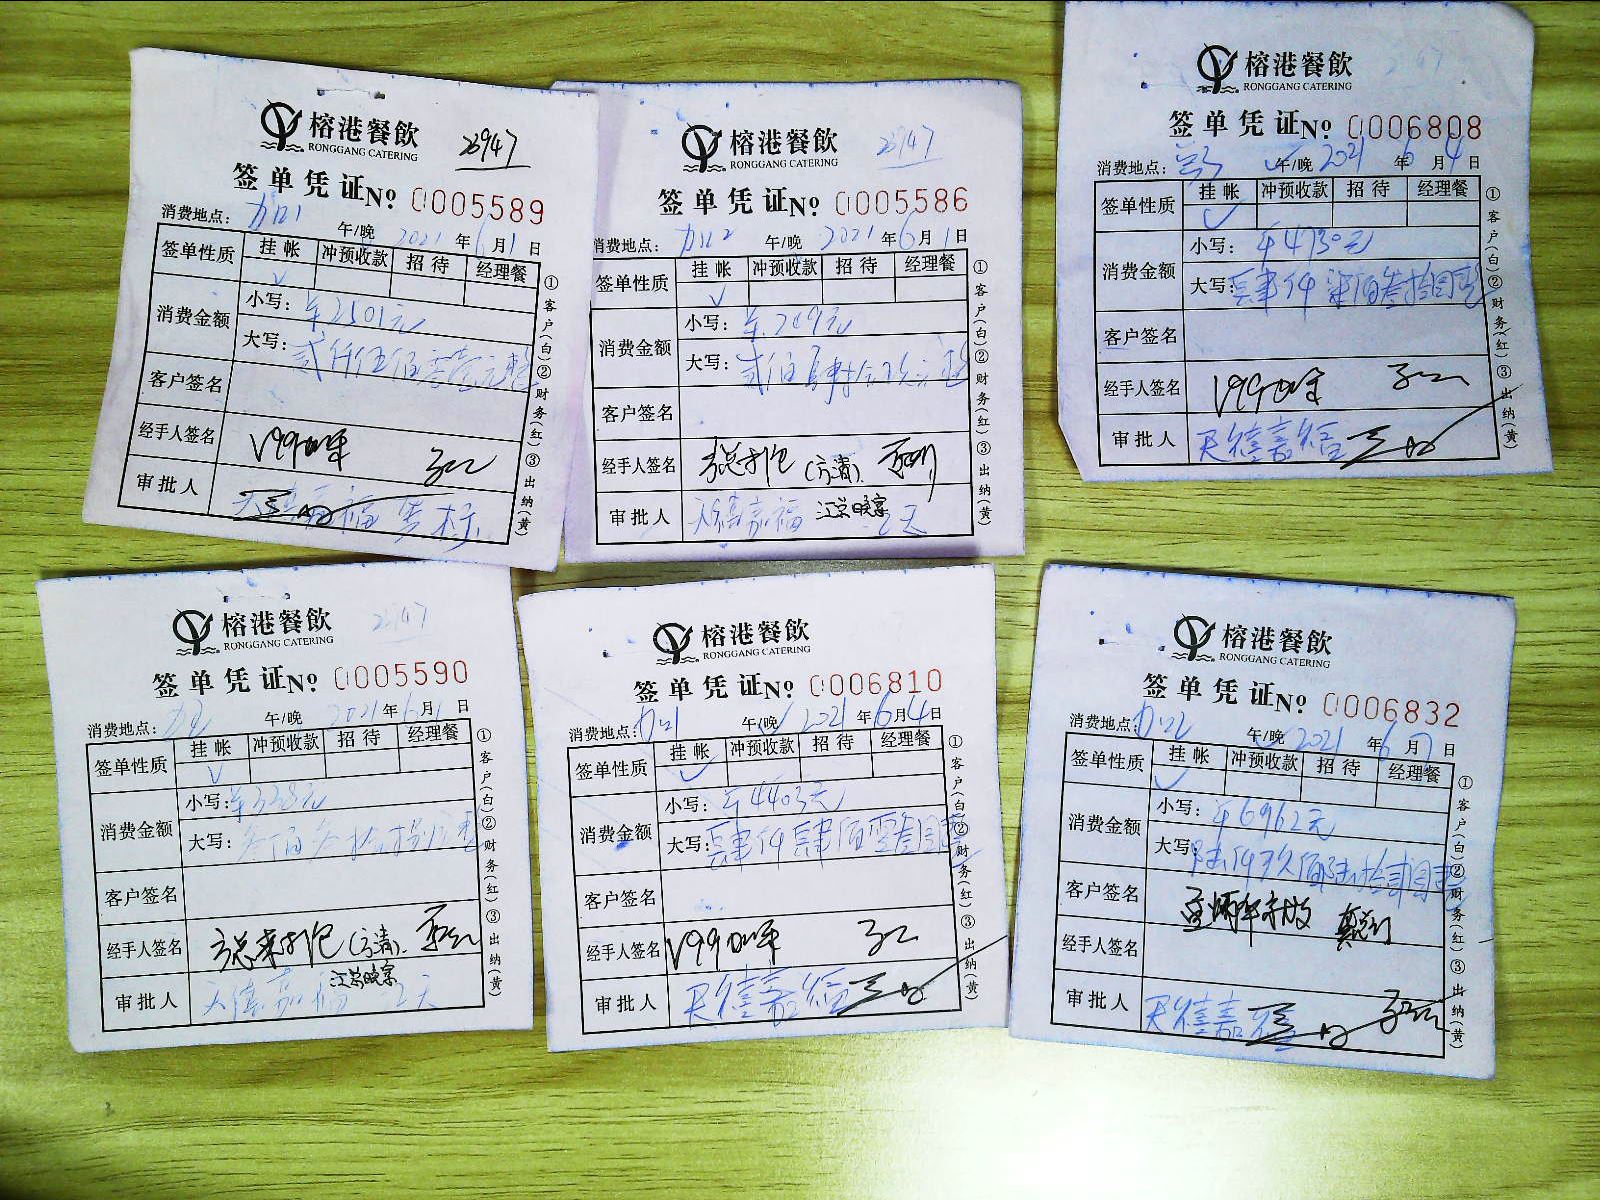 榕港餐飲
RONGGANG CATERING
23947
签单凭证No 0005589
消费地点: 午/晚 2021年6月1日
签单性质 挂帐 冲预收款 招待 经理餐
✓
消费金额
小写: ¥2501元
大写: 贰仟伍佰零壹元整
客户签名
经手人签名
审批人
①客户(白)②财务(红)③出纳(黄)
榕港餐飲
RONGGANG CATERING
23947
签单凭证No 0005586
消费地点: 午/晚 2021年6月1日
签单性质 挂帐 冲预收款 招待 经理餐
✓
消费金额
小写: ¥249元
大写: 贰佰肆拾玖元整
客户签名
经手人签名
审批人 天禧嘉福
①客户(白)②财务(红)③出纳(黄)
榕港餐飲
RONGGANG CATERING
签单凭证No 0006808
消费地点: 午/晚 2021年6月4日
签单性质 挂帐 冲预收款 招待 经理餐
✓
消费金额
小写: ¥4730元
大写: 肆仟柒佰叁拾圆整
客户签名
经手人签名
审批人 天禧嘉福
①客户(白)②财务(红)③出纳(黄)
榕港餐飲
RONGGANG CATERING
23947
签单凭证No 0005590
消费地点: 午/晚 2021年6月1日
签单性质 挂帐 冲预收款 招待 经理餐
✓
消费金额
小写: ¥338元
大写: 叁佰叁拾捌元整
客户签名
经手人签名
审批人 天禧嘉福
①客户(白)②财务(红)③出纳(黄)
榕港餐飲
RONGGANG CATERING
签单凭证No 0006810
消费地点: 午/晚 2021年6月4日
签单性质 挂帐 冲预收款 招待 经理餐
✓
消费金额
小写: ¥4403元
大写: 肆仟肆佰零叁圆整
客户签名
经手人签名
审批人 天禧嘉福
①客户(白)②财务(红)③出纳(黄)
榕港餐飲
RONGGANG CATERING
签单凭证No 0006832
消费地点: 午/晚 2021年6月7日
签单性质 挂帐 冲预收款 招待 经理餐
✓
消费金额
小写: ¥6962元
大写: 陆仟玖佰陆拾贰圆整
客户签名
经手人签名
审批人 天禧嘉福
①客户(白)②财务(红)③出纳(黄)